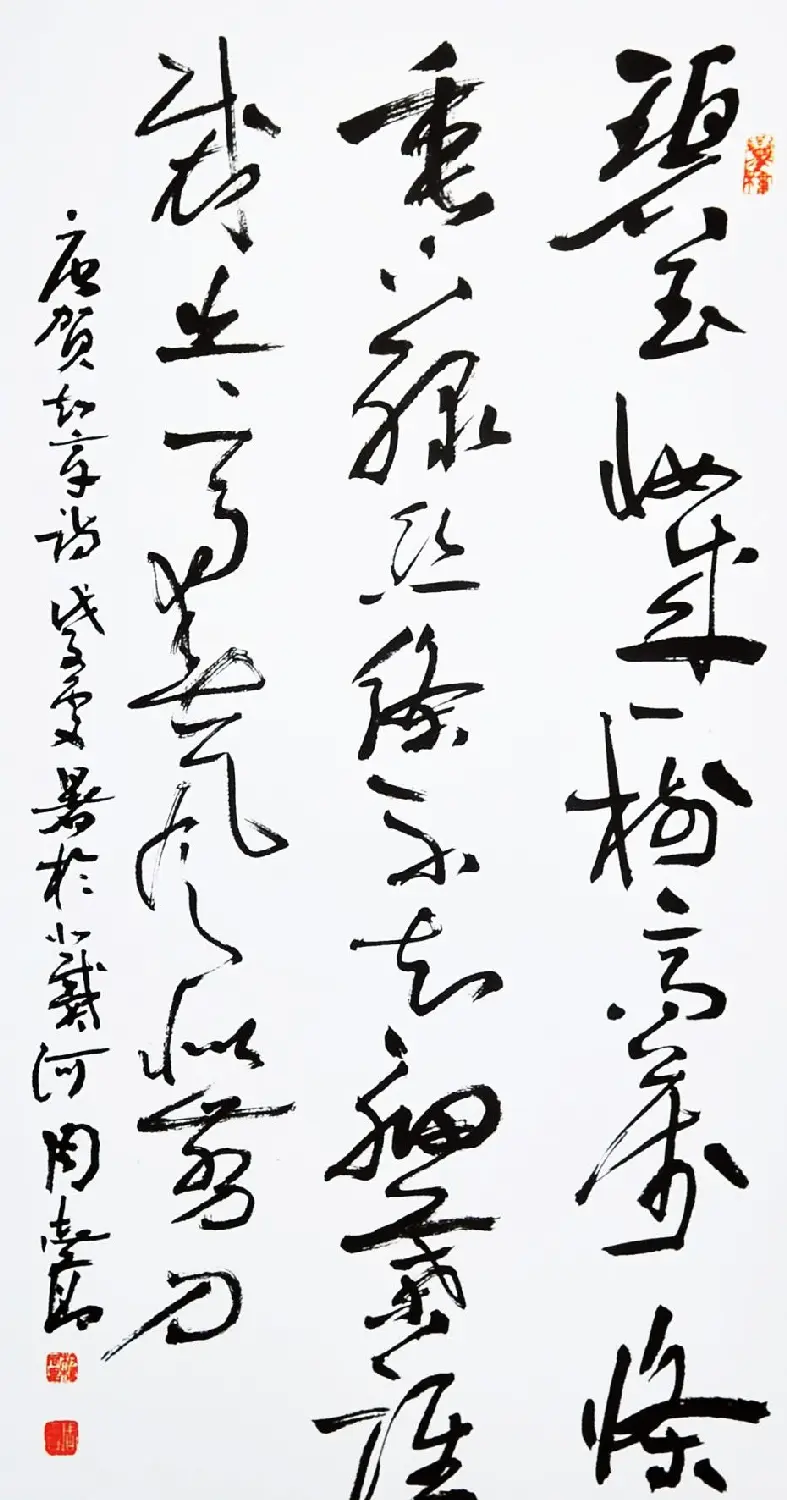 碧玉妝成一樹高萬條
垂下綠絲絛不知細葉誰
裁出二月春風似剪刀
唐賀知章詩夏書於北戴河周